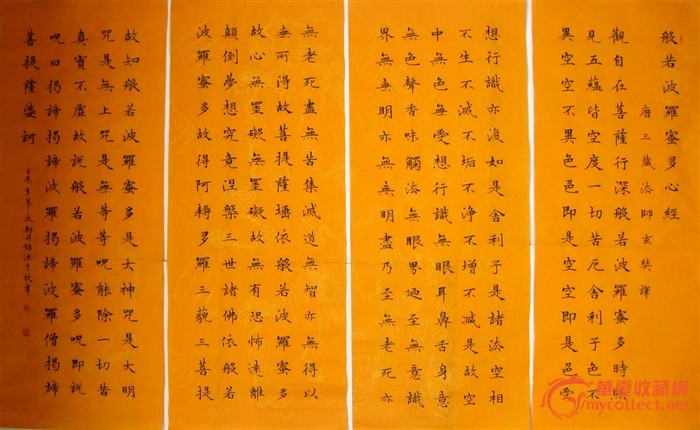 般若波羅蜜多心經
唐三藏法師玄奘譯
觀自在菩薩行深般若波羅蜜多時照
見五蘊皆空度一切苦厄舍利子色不
異空空不異色色即是空空即是色受
想行識亦復如是舍利子是諸法空相
不生不滅不垢不淨不增不減是故空
中無色無受想行識無眼耳鼻舌身意
無色聲香味觸法無眼界廼至無意識
界無無明亦無無明盡乃至無老死亦
無老死盡無苦集滅道無智亦無得以
無所得故菩提薩埵依般若波羅蜜多
故心無罣礙無罣礙故無有恐怖遠離
顛倒夢想究竟涅槃三世諸佛依般若
波羅蜜多故得阿耨多羅三藐三菩提
故知般若波羅蜜多是大神咒是大明
咒是無上咒是無等等呪能除一切苦
真實不虛故說般若波羅蜜多呪即說
呪曰揭諦揭諦波羅揭諦波羅僧揭諦
菩提薩婆訶
華夏收藏網
mycollect.net